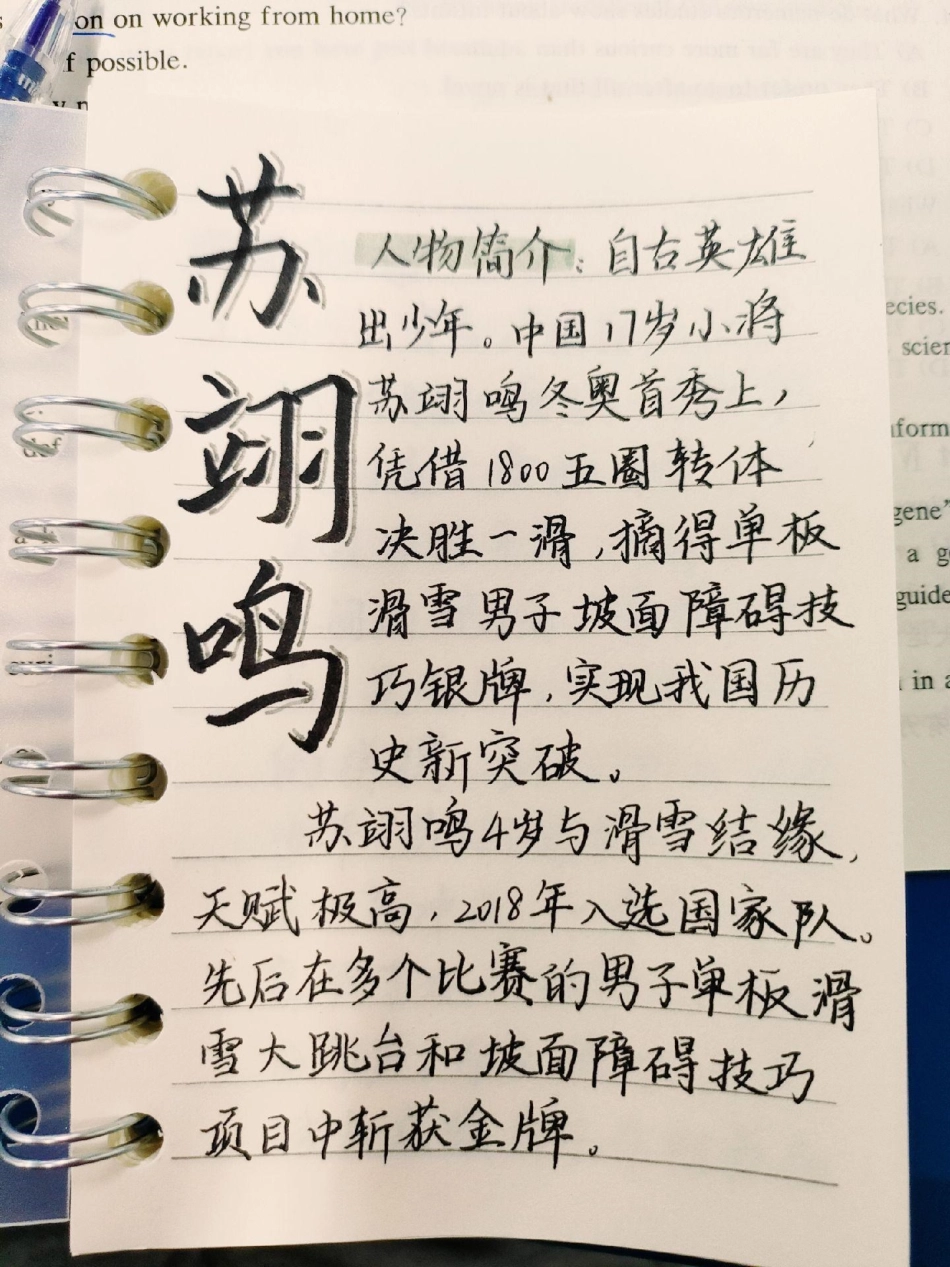 on on working from home?
f possible.
苏翊鸣
人物简介：自古英雄
出少年。中国17岁小将
苏翊鸣冬奥首秀上，
凭借1800五圈转体
决胜一滑，摘得单板
滑雪男子坡面障碍技
巧银牌，实现我国历
史新突破。
苏翊鸣4岁与滑雪结缘，
天赋极高，2018年入选国家队。
先后在多个比赛的男子单板滑
雪大跳台和坡面障碍技巧
项目中斩获金牌。
ecies.
scien
nform
gene"
a g
guide
in a